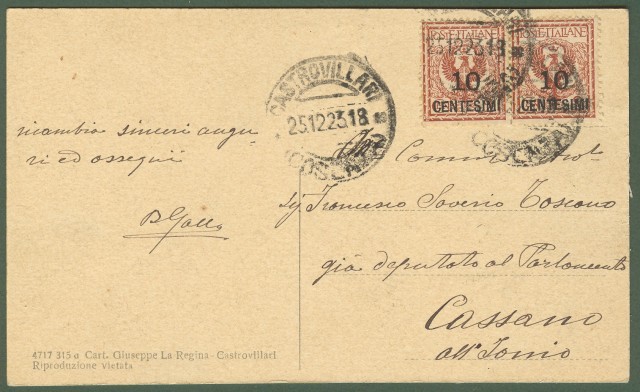 POSTE ITALIANE
POSTE ITALIANE
10
CENTESIMI
10
CENTESIMI
25.12.23.18
CASTROVILLARI
25.12.23.18
(COSENZA)
ricambia sinceri augu-
ri ed ossequi
BGallo
Comm.
Sig Francesco Saverio Toscano
già deputato al Parlamento
Cassano
all'Ionio
4717 315 a Cart. Giuseppe La Regina - Castrovillari
Riproduzione vietata